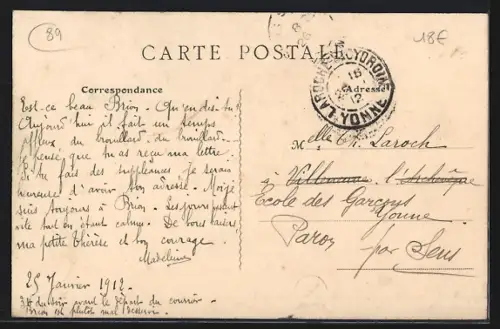 89
18€
CARTE POSTALE
Correspondance
Adresse
LAROCHE YONNE
15
12
Est-ce beau Brion. Qu'en dis-tu ?
Aujourd'hui il fait un temps
affreux du brouillard, du brouillard.
Je pense que tu as reçu ma lettre.
Si tu fais des suppléances je serais
heureuse d'avoir ton adresse. Moi je
suis toujours à Brion. Les jours passent
vite tout en étant calmes. De bons baisers
ma petite Thérèse et bon courage.
Madeleine
25 Janvier 1912.
3h du soir avant le départ du courrier.
Brion est plutôt mal desservi.
Melle Th. Laroch
à Villeneuve l'Archevêque
Ecole des Garçons
Yonne
Paron
par Sens